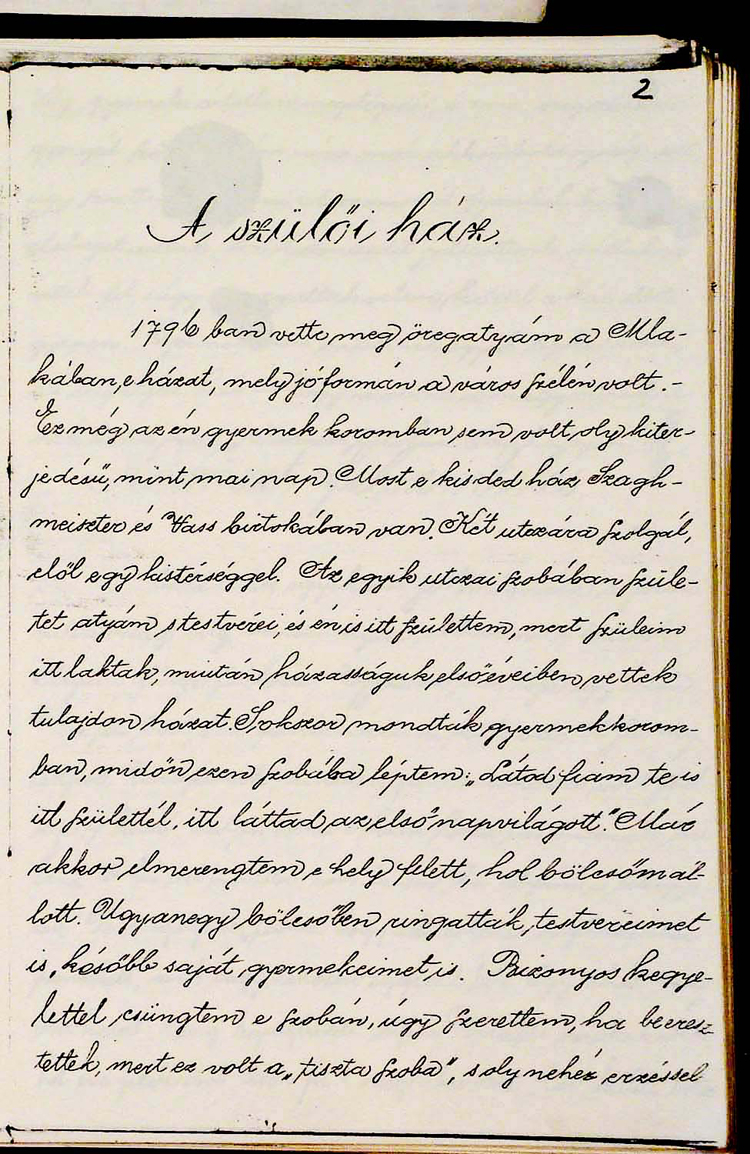 2
A szülői ház.
1796 ban vette meg öregatyám a Mla-
kában, e házat, mely jóformán a város szélén volt. –
Ez még az én gyermek koromban sem volt oly kiter-
jedésű, mint mai nap. Most e kisded ház Szagh-
meiszter és Vass birtokában van. Két utczára szolgál,
elől egy kistérséggel. Az egyik utczai szobában szüle-
tet atyám s testvérei, és én is itt születtem, mert szüleim
itt laktak, miután házasságuk első éveiben vettek
tulajdon házat. Sokszor mondták gyermekkorom-
ban, midőn ezen szobába léptem: „Látod fiam te is
itt születtél, itt láttad az első napvilágott". Már
akkor elmerengtem e hely felett, hol bölcsőm ál-
lott. Ugyanegy bölcsőben ringatták testvéreimet
is, később saját gyermekeimet is. Bizonyos kegye-
lettel csüngtem e szobán, úgy szerettem, ha beeresz
tettek, mert ez volt a „tiszta szoba", s oly nehéz erzéssel